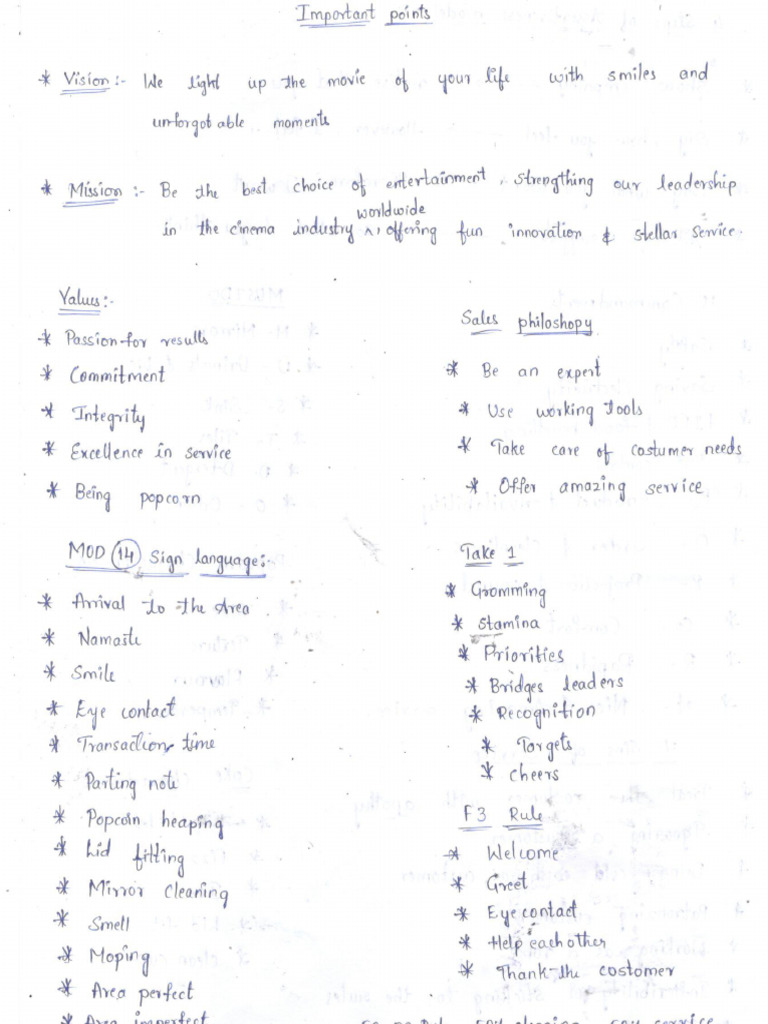 Important points
* Vision :- We light up the movie of your life with smiles and
unforgotable moments
* Mission :- Be the best choice of entertainment, strengthing our leadership
in the cinema industry worldwide, offering fun innovation & stellar service.
Values :-
* Passion for results
* Commitment
* Integrity
* Excellence in service
* Being popcorn
Sales philoshopy
* Be an expert
* Use working tools
* Take care of costumer needs
* Offer amazing service
MOD 14 Sign language :-
* Arrival to the Area
* Namaste
* Smile
* Eye contact
* Transaction time
* Parting note
* Popcoin heaping
* Lid fitting
* Mirror cleaning
* Smell
* Moping
* Area perfect
* Area imperfect
Take 1
* Gromming
* Stamina
* Priorities
* Bridges leaders
* Recognition
* Targets
* cheers
F3 Rule
* Welcome
* Greet
* Eye contact
* Help each other
* Thank the costomer